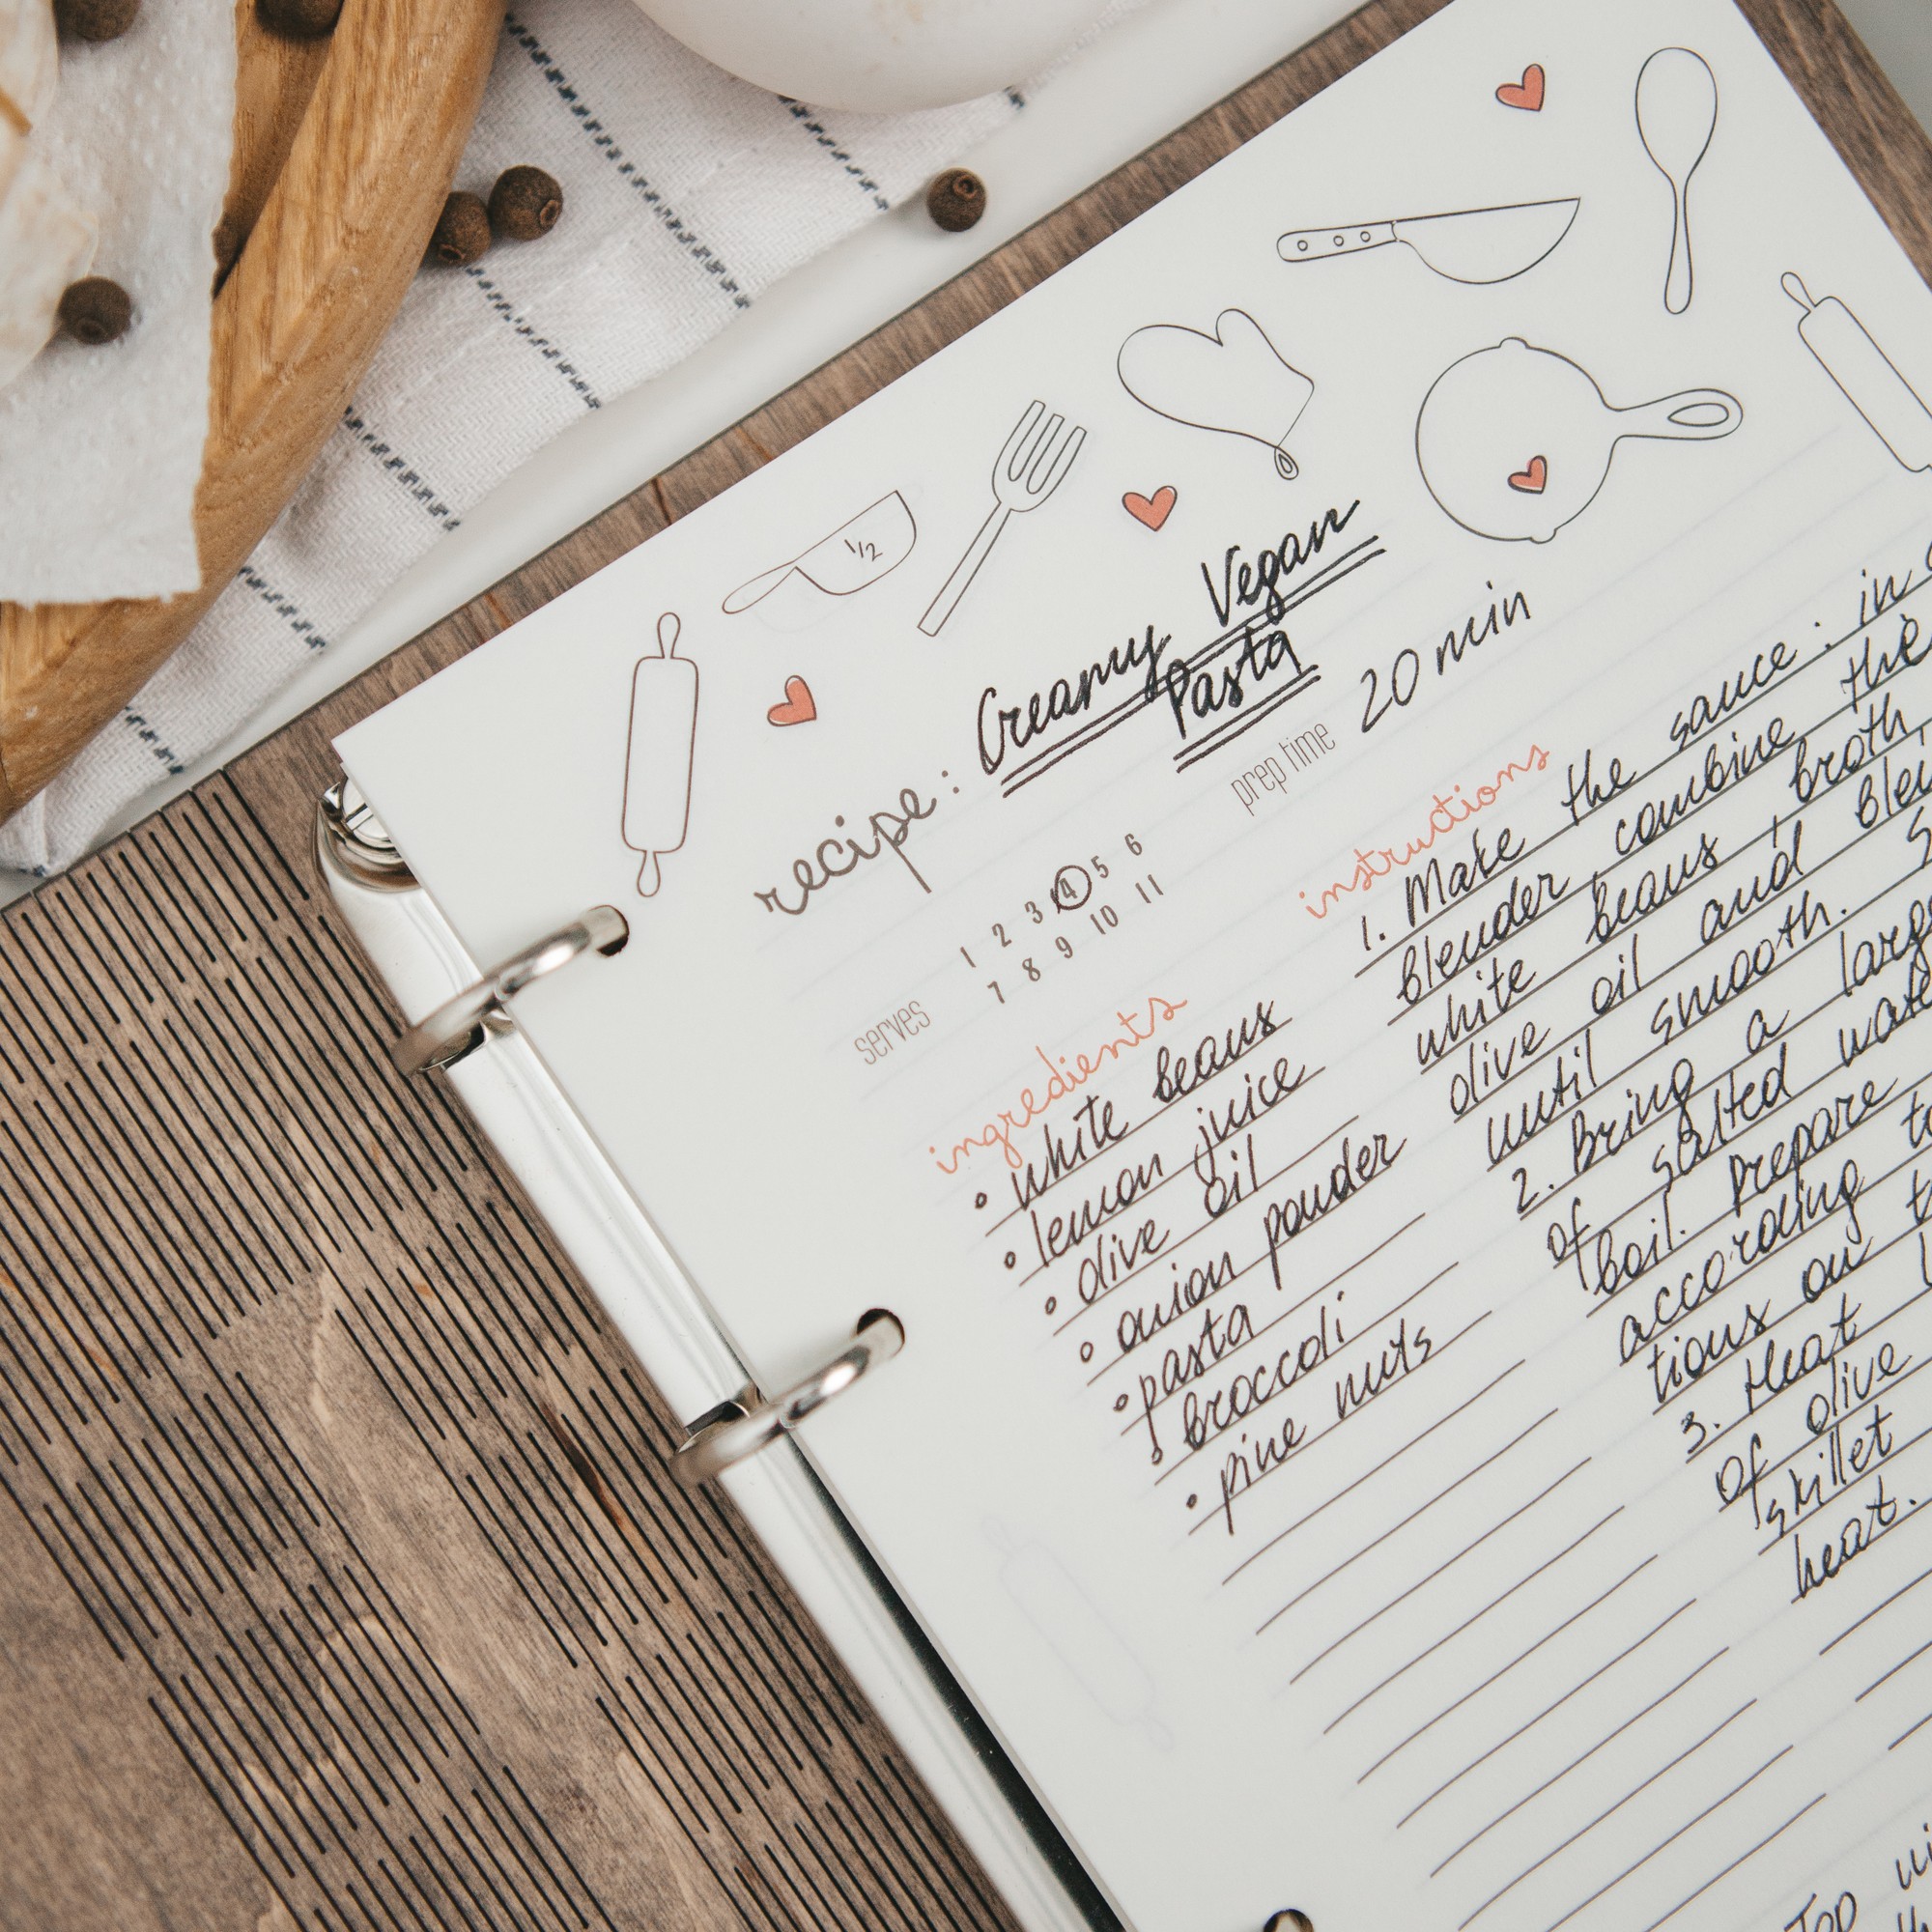 1/2
recipe: Creamy Vegan
Pasta
serves
1 2 3 4 5 6
7 8 9 10 11
prep time 20 min
ingredients
• white beans
• lemon juice
• olive oil
• onion powder
• pasta
• broccoli
• pine nuts
instructions
1. Make the sauce: in
blender, combine the
white beans, broth,
olive oil and
until smooth.
2. Bring a
of salted
boil. Prepare
according
tions on
3. Heat
of olive
skillet
heat.
Top